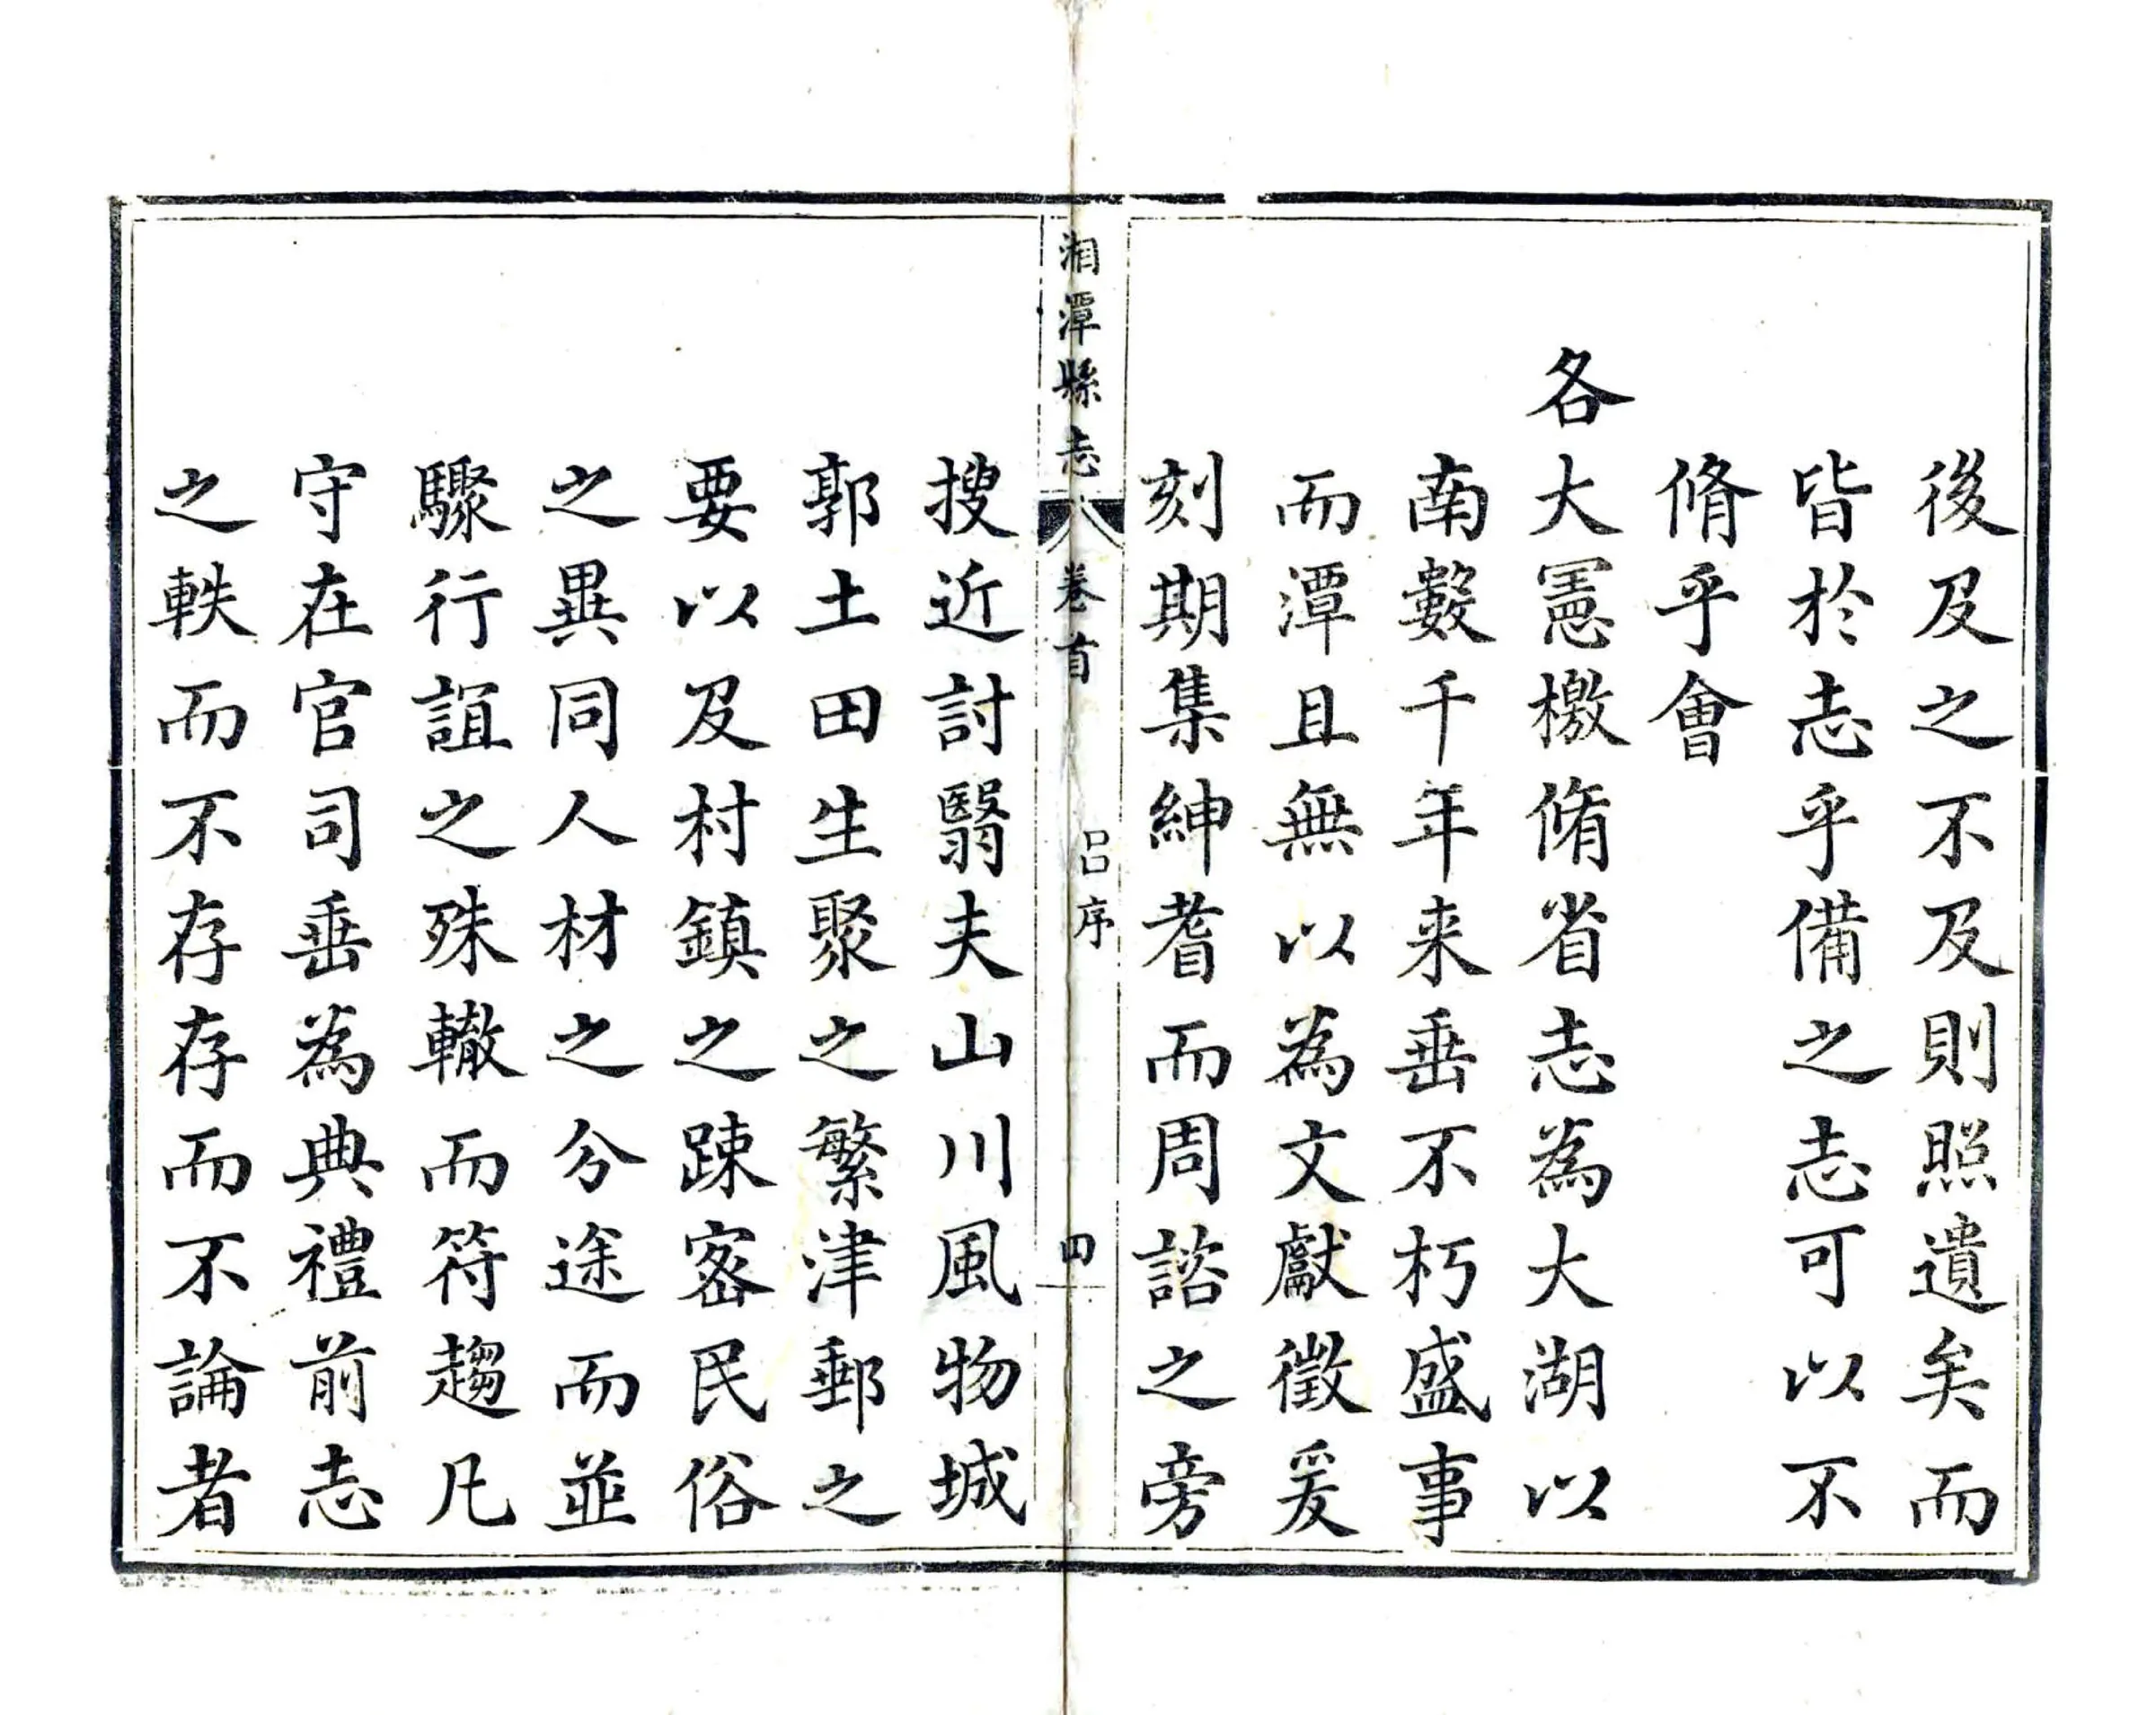 後及之不及則照遺矣而
皆於志乎備之志可以不
脩乎會
各大憲檄脩省志為大湖以
南數千年来垂不朽盛事
而潭且無以為文獻徵爰
刻期集紳耆而周諮之旁
湘潭縣志 卷首 呂序 四
搜近討翳夫山川風物城
郭土田生聚之繁津郵之
要以及村鎮之踈密民俗
之異同人材之分途而並
驟行誼之殊轍而符趨凡
守在官司垂為典禮前志
之軼而不存存而不論者